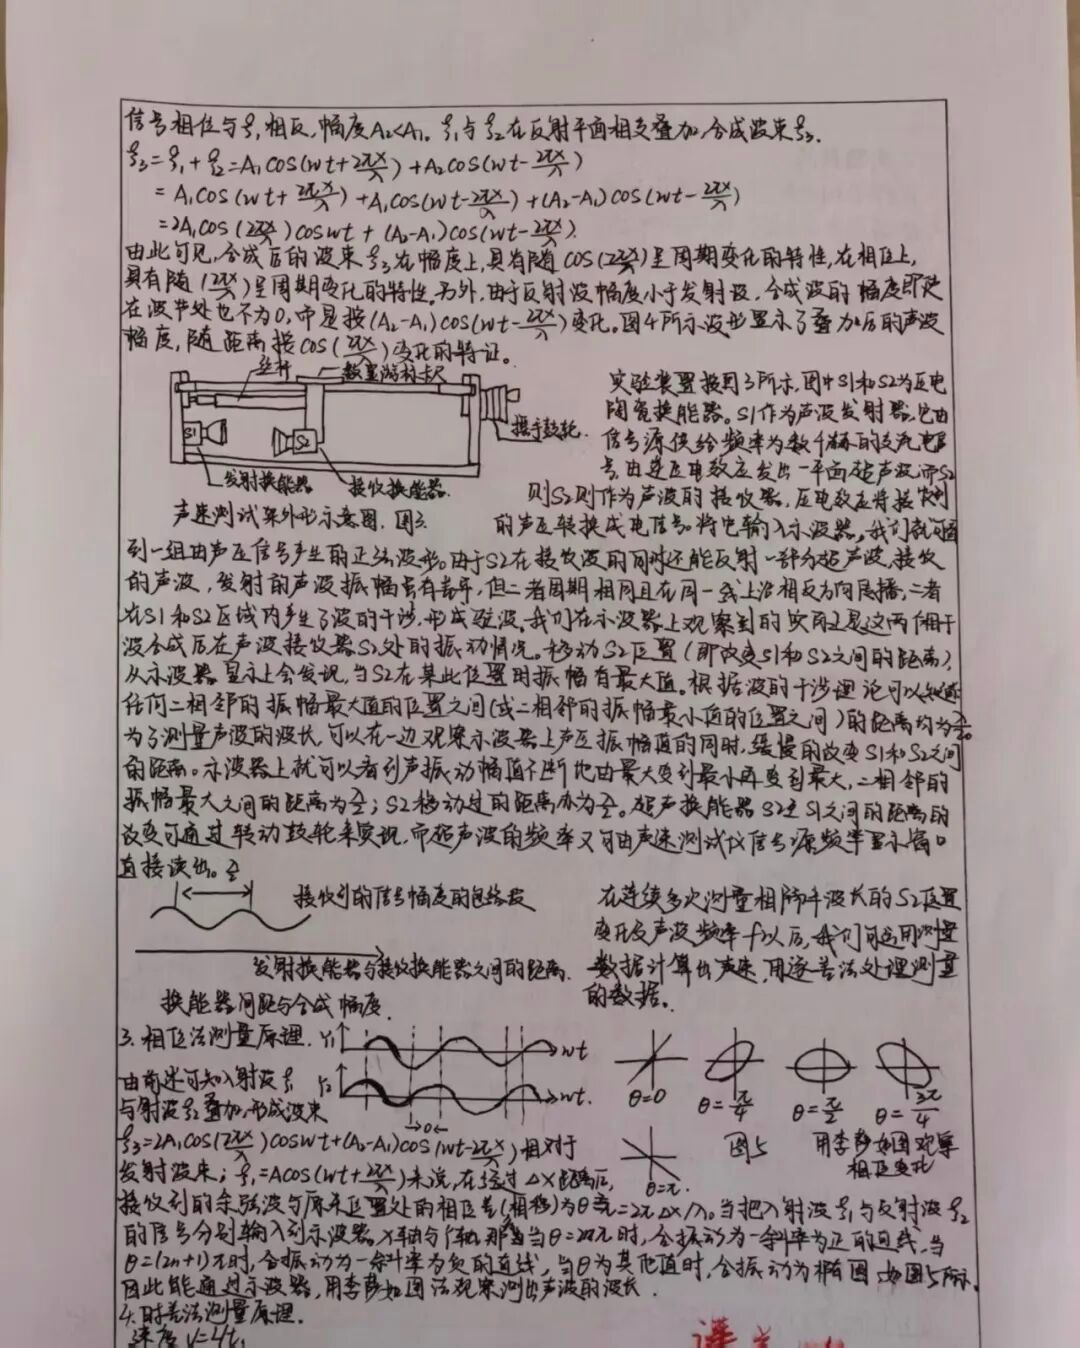 信号相位与ξ₁相反，幅度A₂<A₁。ξ₁与ξ₂在反射平面相交叠加，合成波束ξ₃。
ξ₃=ξ₁+ξ₂=A₁cos(wt+2πx/λ)+A₂cos(wt-2πx/λ)
=A₁cos(wt+2πx/λ)+A₁cos(wt-2πx/λ)+(A₂-A₁)cos(wt-2πx/λ)
=2A₁cos(2πx/λ)coswt+(A₂-A₁)cos(wt-2πx/λ).
由此可见，合成后的波束ξ₃在幅度上，具有随cos(2πx/λ)呈周期变化的特性，在相位上，
具有随(2πx/λ)呈周期变化的特性。另外，由于反射波幅度小于发射波，合成波的幅度即使
在波节处也不为0，而是按(A₂-A₁)cos(wt-2πx/λ)变化。图4所示波形显示了叠加后的声波
幅度，随距离按cos(2πx/λ)变化的特征。
丝杆
数显游标卡尺
S1
S2
摇手鼓轮.
发射换能器
接收换能器.
声速测试架外形示意图. 图3.
实验装置按图3所示，图中S1和S2为压电
陶瓷换能器。S1作为声波发射器，它由
信号源供给频率为数千赫的交流电信
号，由逆压电效应发出一平面超声波；而S2
则S2则作为声波的接收器，压电效应将接收到
的声压转换成电信号。将它输入示波器，我们就可看
到一组由声压信号产生的正弦波形。由于S2在接收波的同时还能反射一部分超声波，接收
的声波，发射的声波振幅虽有差异，但二者周期相同且在同一线上沿相反方向传播，二者
在S1和S2区域内产生了波的干涉，形成驻波。我们在示波器上观察到的实际上是这两个相干
波合成后在声波接收器S2处的振动情况。移动S2位置(即改变S1和S2之间的距离)，
从示波器显示上会发现，当S2在某此位置时振幅有最大值。根据波的干涉理论可以知道
任何二相邻的振幅最大值的位置之间(或二相邻的振幅最小值的位置之间)的距离均为λ/2。
为了测量声波的波长，可以在一边观察示波器上声压振幅值的同时，缓慢的改变S1和S2之间
的距离。示波器上就可以看到声振动幅值不断地由最大变到最小再变到最大，二相邻的
振幅最大之间的距离为λ/2；S2移动过的距离亦为λ/2。超声换能器S2至S1之间的距离的
改变可通过转动鼓轮来实现，而超声波的频率又可由声速测试仪信号源频率显示窗口
直接读出。
λ/2
接收到的信号幅度的包络波
发射换能器与接收换能器之间的距离.
换能器间距与合成幅度.
在连续多次测量相隔半波长的S2位置
变化及声波频率f以后，我们可运用测量
数据计算出声速，用逐差法处理测量
的数据。
3. 相位法测量原理.
Y₁
wt
Y₂
wt.
θ
θ=0
θ=π/4
θ=π/2
θ=3π/4
θ=π.
图5
用李萨如图观察
相位变化
由前述可知入射波ξ₁
与射波ξ₂叠加，形成波束
ξ₃=2A₁cos(2πx/λ)coswt+(A₂-A₁)cos(wt-2πx/λ)相对于
发射波束；ξ₁=Acos(wt+2πx/λ)来说，在经过ΔX距离后，
接收到的余弦波与原来位置处的相位差(相移)为θ=2πΔx/λ。当把入射波ξ₁与反射波ξ₂
的信号分别输入到示波器，X轴与Y轴，那当当θ=2nπ时，合振动为一条斜率为正的直线，当
θ=(2n+1)π时，合振动为一条斜率为负的直线，当θ为其他值时，合振动为椭圆，如图5所示.
因此能通过示波器，用李萨如图法观察测出声波的波长.
4. 时差法测量原理.
速度V=L/t